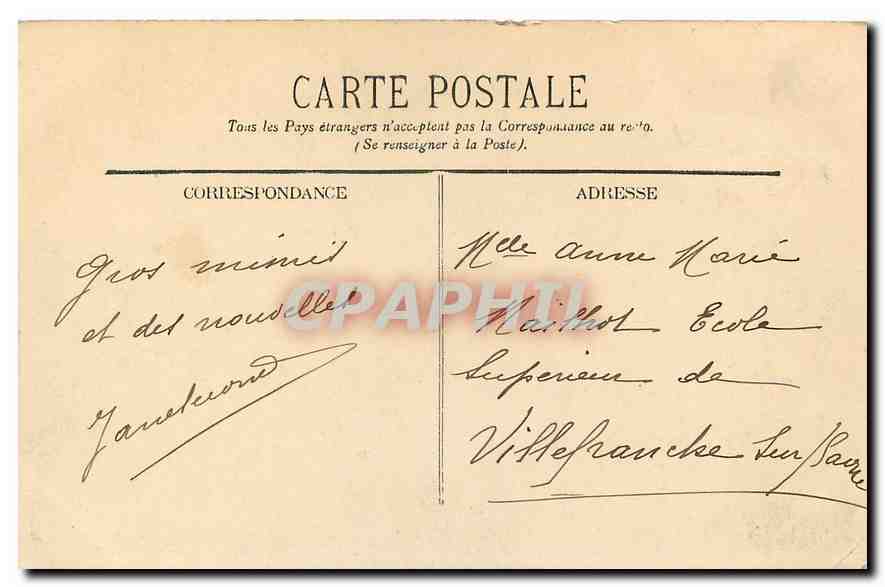 CARTE POSTALE
Tous les Pays étrangers n'acceptent pas la Correspondance au recto.
(Se renseigner à la Poste).
CORRESPONDANCE
ADRESSE
Gros mimis
et des nouvelles
Mlle Anne Marie
Ecole
Superieur de
Villefranche Sur/Saone
CPAPHIL